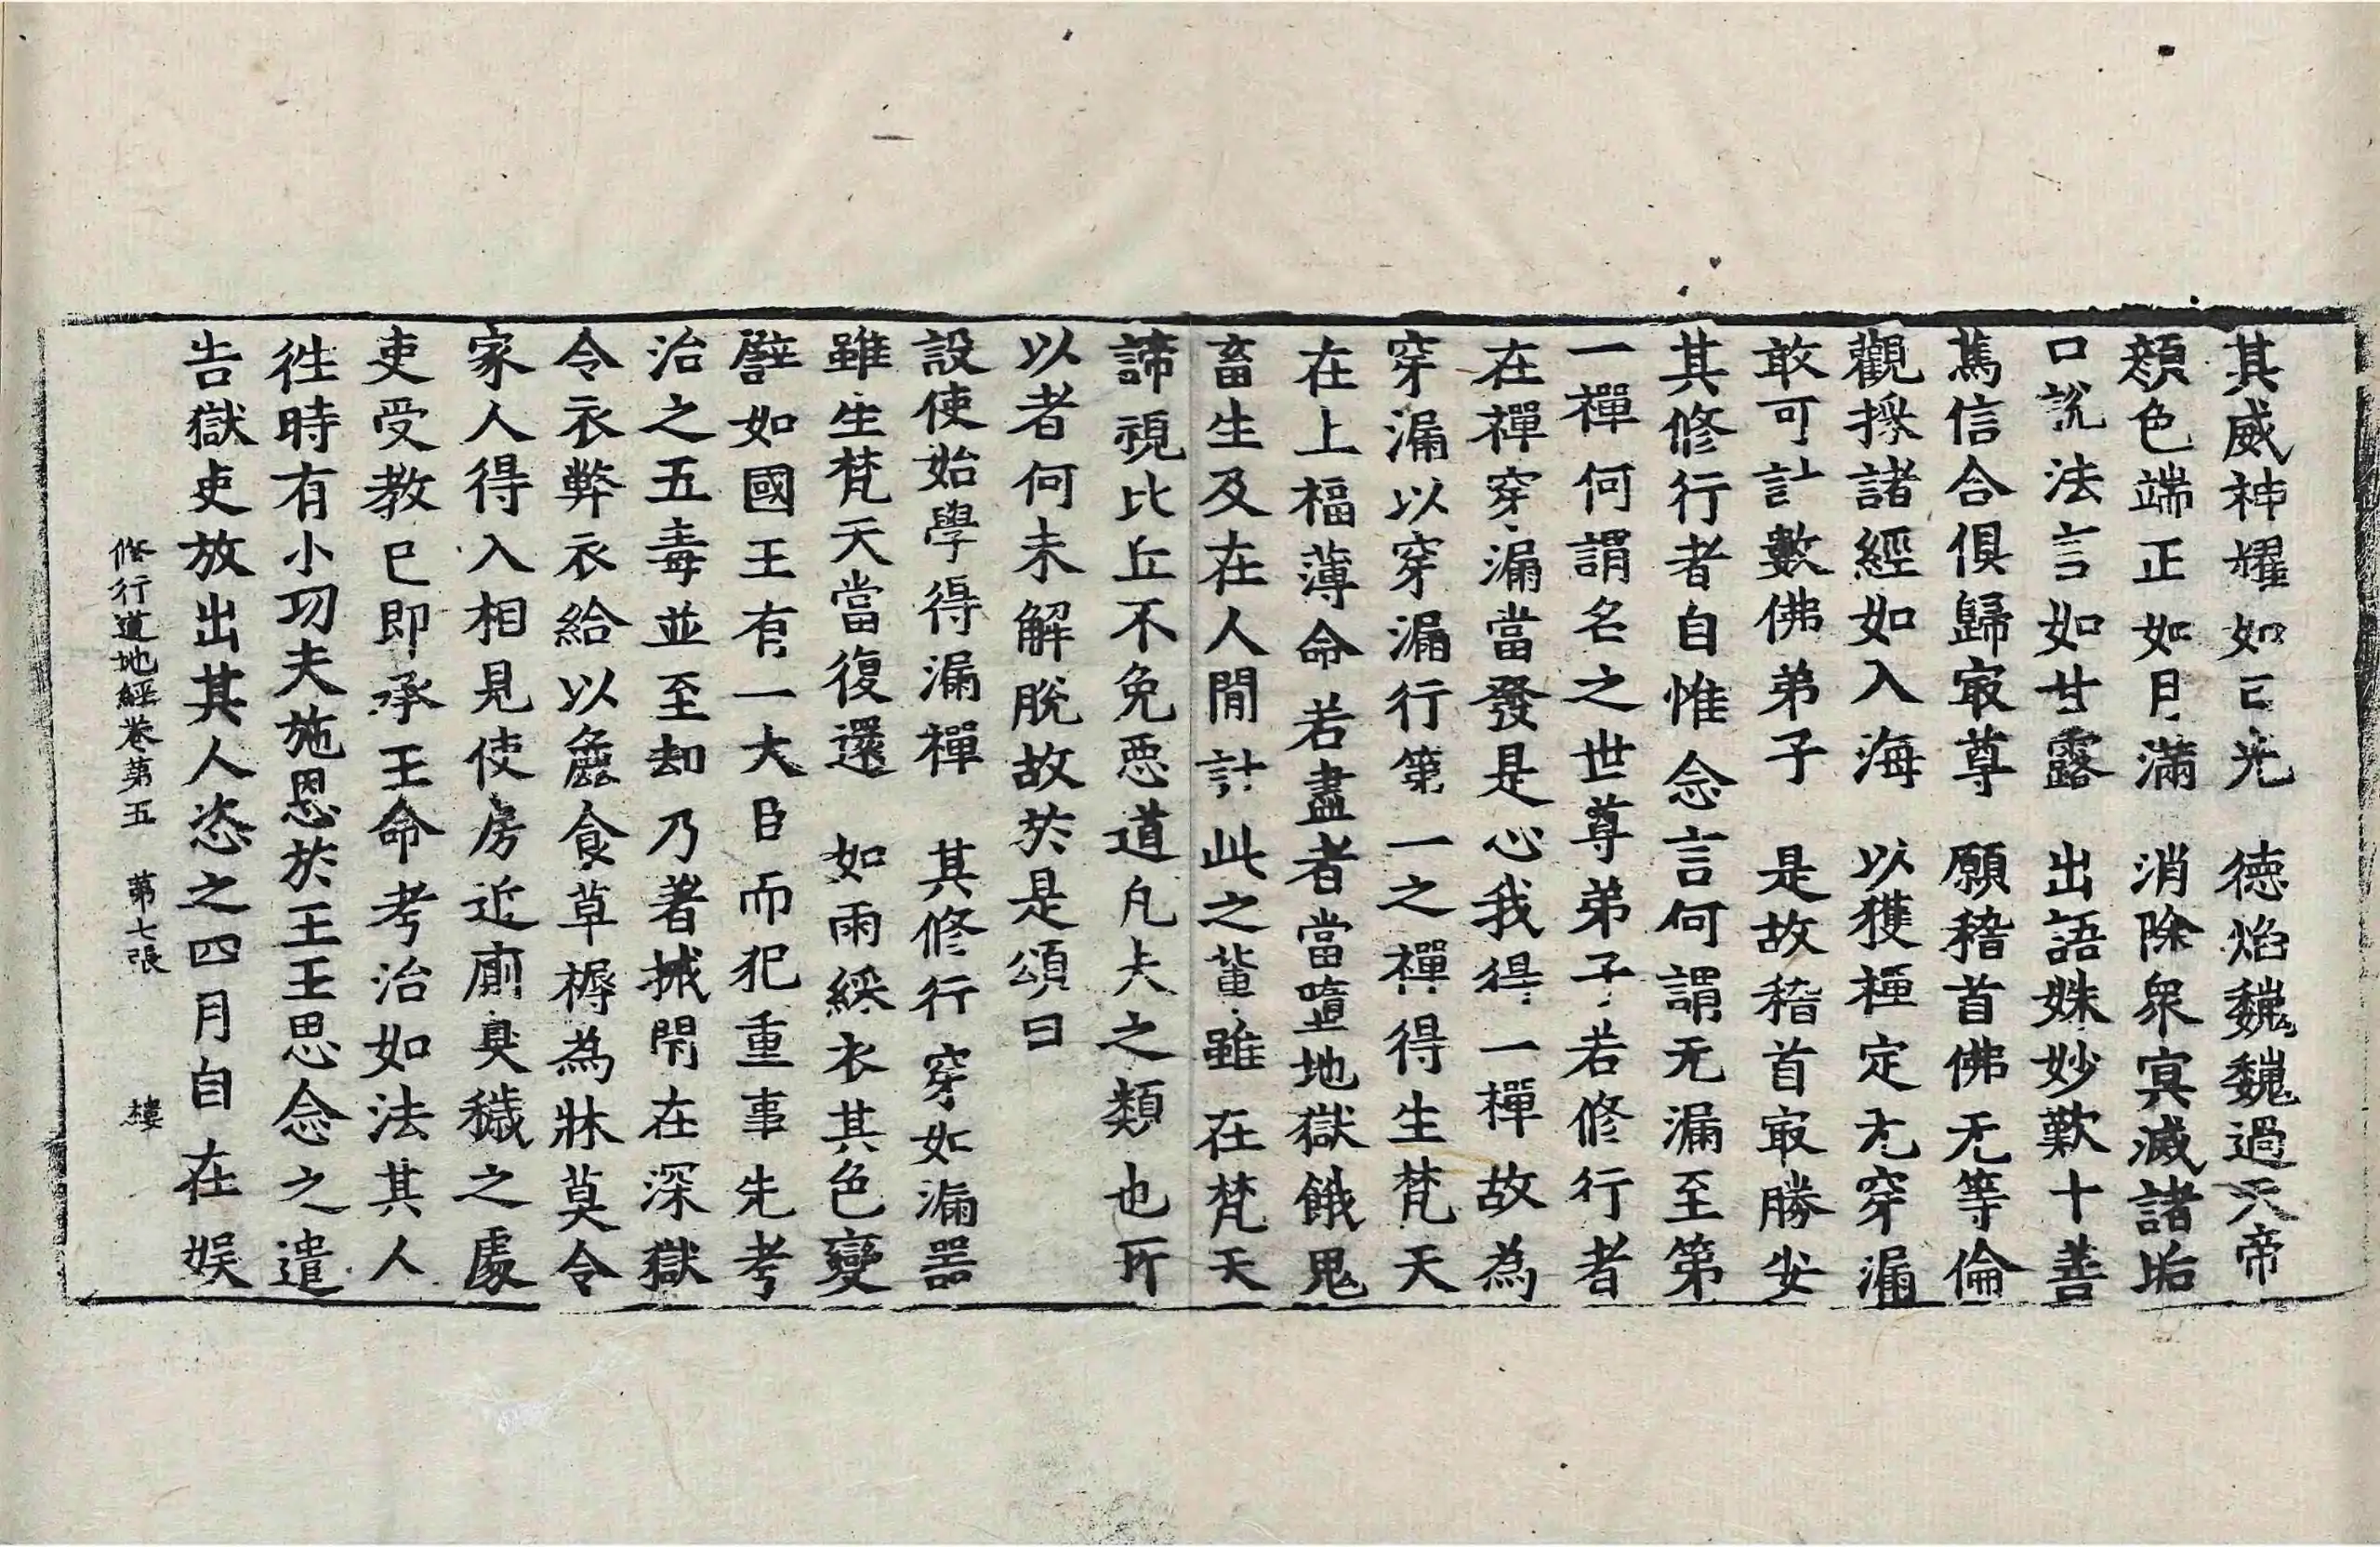 其威神耀如日光　德焰巍巍過天帝
顏色端正如月滿　消除衆冥滅諸垢
口說法言如甘露　出語姝妙歎十善
篤信合俱歸冣尊　願稽首佛无等倫
觀採諸經如入海　以獲極定无穿漏
敢可計數佛弟子　是故稽首冣勝安
其修行者自惟念言何謂无漏至第
一禪何謂名之世尊弟子若修行者
在禪穿漏當發是心我得一禪故為
穿漏以穿漏行第一之禪得生梵天
在上福薄命若盡者當墮地獄餓鬼
畜生及在人閒計此之輩雖在梵天
諦視比丘不免惡道凡夫之類也所
以者何未解脫故於是頌曰
設使始學得漏禪　其修行穿如漏器
雖生梵天當復還　如雨綵衣其色變
譬如國王有一大臣而犯重事先考
治之五毒並至却乃著械閇在深獄
令衣弊衣給以麁食草褥為牀莫令
家人得入相見使房近廁臭穢之處
吏受教已即承王命考治如法其人
徃時有小功夫施恩於王王思念之遣
告獄吏放出其人恣之四月自在娛
修行道地經卷第五　第七張　樓